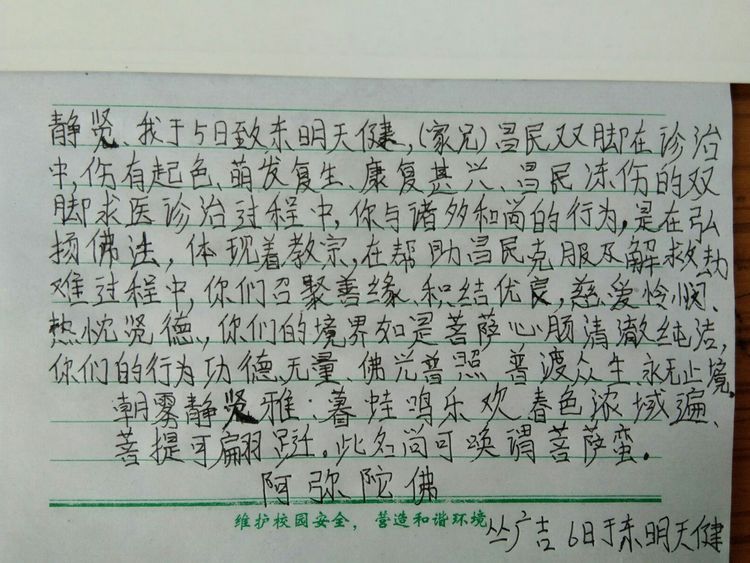 静贤、我于5日致东明天健,(家兄)昌民双脚在诊治
中,伤有起色、萌发复生、康复甚兴、昌民冻伤的双
脚求医诊治过程中,你与诸多和尚的行为,是在弘
扬佛法,体现着教宗,在帮助昌民克服及解救劫
难过程中,你们召聚善缘、积结优良,慈爱怜悯、
热忱贤德、,你们的境界如是菩萨心肠清澈纯洁,
你们的行为功德、无量 佛光普照 普渡众生、永无止境。
朝雾静贤雅:暮蛙鸣乐欢春色浓域遍、
菩提可翩跹。此名尚可唤谓菩萨蛮。
阿弥陀佛
维护校园安全,营造和谐环境
丛广吉 6日于东明天健